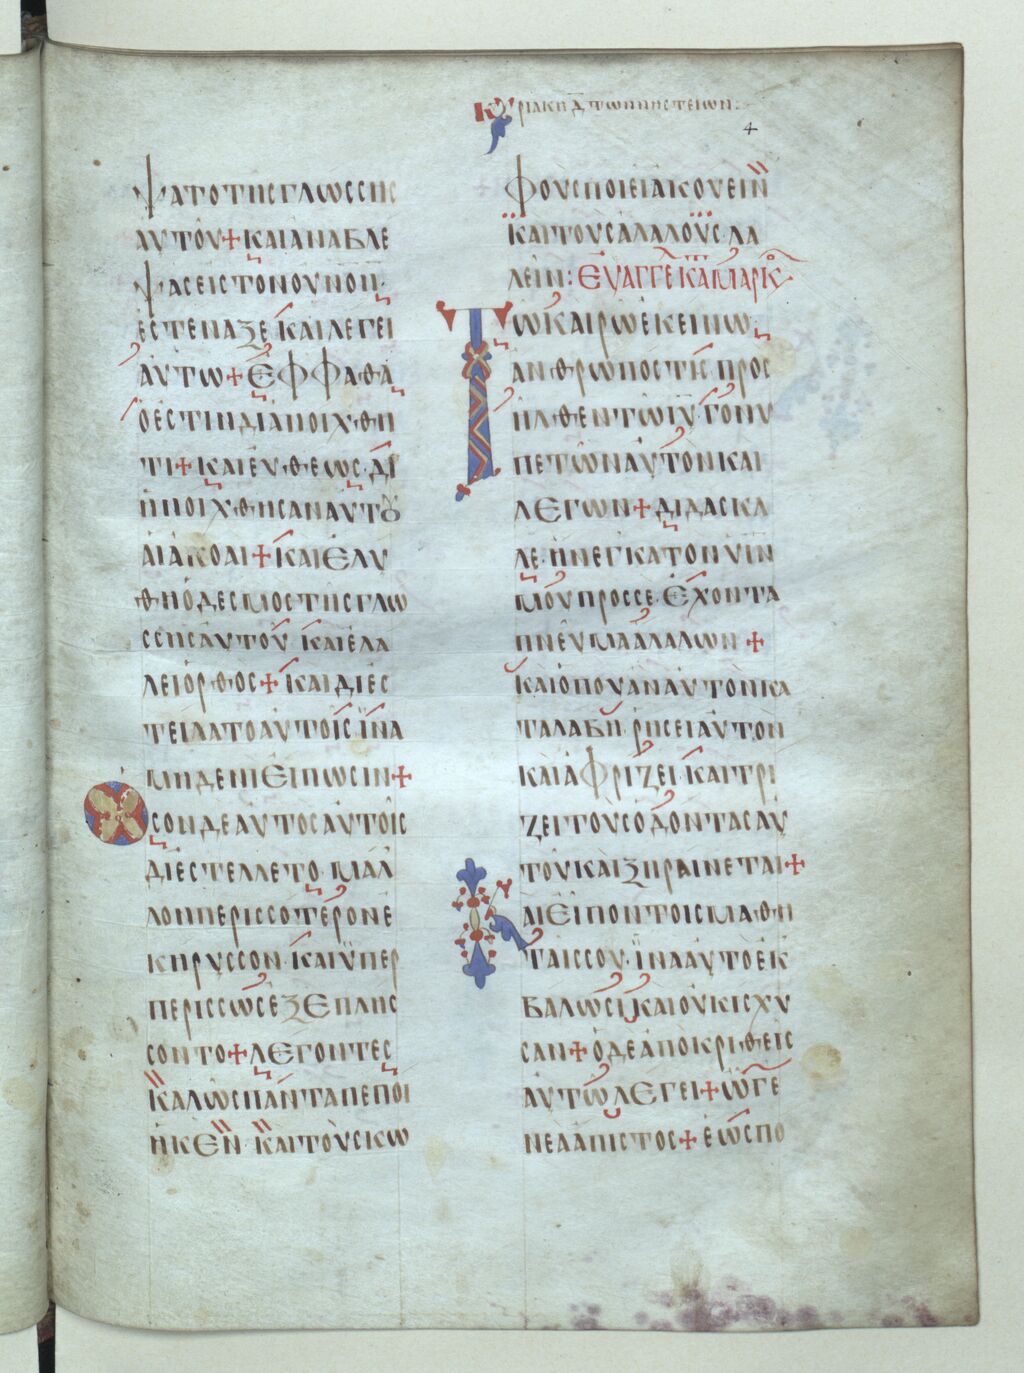 Κυριακη Δ των νηστειων:
4
ψατο της γλωσσης
αυτου + και αναβλε
ψας εις τον ουνον
εστεναξε και λεγει
αυτω + Εφφαθα
ο εστιν διανοιχθη
τι + και ευθεως δι
ηνοιχθησαν αυτου
αι ακοαι + και ελυ
θη ο δεσμος της γλω
σσης αυτου και ελα
λει ορθος + και διες
τειλατο αυτοις ϊνα
μηδενι ειπωσιν +
Οσον δε αυτος αυτοις
διεστελλετο μαλ
λον περισσοτερον ε
κηρυσσον και ϋπερ
περισσως εξεπλης
σοντο + λεγοντες
καλως παντα πεποι
ηκεν και τους κω
φους ποιει ακουειν
και τους αλαλους λα
λειν: Ευαγγε κτ Μαρκ
Τω καιρω εκεινω
ανθρωπος τις προς
ηλθεν τω ιυ γονυ
πετων αυτον και
λεγων + διδασκα
λε ηνεγκα τον υιν
μου προς σε Εχοντα
πνευμα αλαλων +
και οπου αν αυτον κα
ταλαβη ρησει αυτον
και αφριζει και τρι
ζει τους οδοντας αυ
του και ξηραινεται +
Και ειπον τοις μαθη
ταις σου ϊνα αυτο εκ
βαλωσι και ουκ ισχυ
σαν + ο δε αποκριθεις
αυτω λεγει + ω γε
νεα απιστος + εως πο